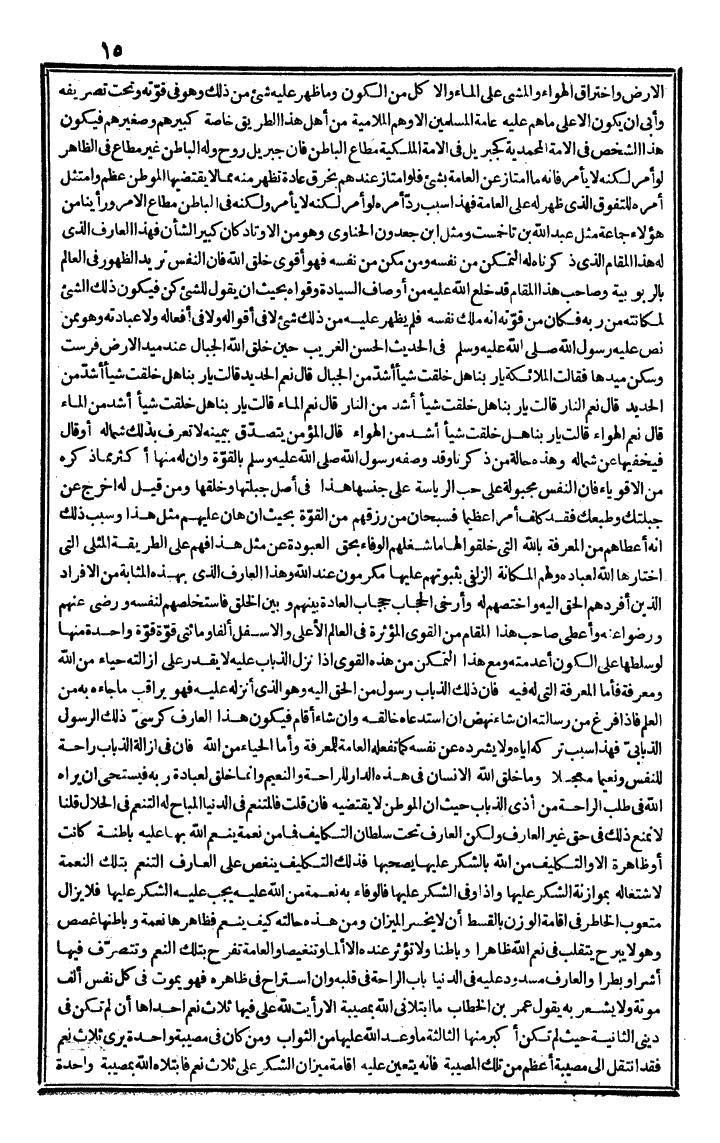 ١٥
الارض واختراق الهواء والمشى على الماء والاكل من الكون وما ظهر عليه شئ من ذلك وهو فى قوّته وتحت تصريفه
وأبى ان يكون الاعلى ماهم عليه عامة المسلمين الاوهم الملامية من أهل هذا الطريق خاصة كبيرهم وصغيرهم فيكون
هذا الشخص فى الامة المحمدية كجبريل فى الامة الملكية مطاع الباطن فان جبريل روح وله الباطن غير مطاع فى الظاهر
لو أمر لكنه لا يأمر فانه ما امتاز عن العامة بشئ فلو امتاز عندهم بخرق عادة تظهر منه مما لا يقتضيها الموطن عظم وامتثل
أمره للتفوق الذى ظهر له على العامة فهذا سبب ردّ أمره لو أمر لكنه لا يأمر ولكنه فى الباطن مطاع الامر ورأينا من
هؤلاء جماعة مثل عبد الله بن تاخمست ومثل ابن جعدون الحناوى وهو من الاوتاد كان كبير الشأن فهذا العارف الذى
له هذا المقام الذى ذكرناه له التمكن من نفسه ومن مكن من نفسه فهو أقوى خلق الله فان النفس تريد الظهور فى العالم
بالربوبية وصاحب هذا المقام قد خلع الله عليه من أوصاف السيادة وقواه بحيث ان يقول للشئ كن فيكون ذلك الشئ
لمكانته من ربه فكان من قوّته انه ملك نفسه فلم يظهر عليه من ذلك شئ لا فى أقواله ولا فى أفعاله ولا عبادته وهو ممن
نص عليه رسول الله صلى الله عليه وسلم فى الحديث الحسن الغريب حين خلق الله الجبال عند ميد الارض فرست
وسكن ميدها فقالت الملائكة يا ربنا هل خلقت شيأ أشدّ من الجبال قال نعم الحديد قالت يا ربنا هل خلقت شيأ أشدّ من
الحديد قال نعم النار قالت يا ربنا هل خلقت شيأ أشد من النار قال نعم الماء قالت يا ربنا هل خلقت شيأ أشد من الماء
قال نعم الهواء قالت يا ربنا هل خلقت شيأ أشد من الهواء قال المؤمن يتصدّق بيمينه لا تعرف بذلك شماله أو قال
فيخفيها عن شماله وهذه حالة من ذكرنا وقد وصفه رسول الله صلى الله عليه وسلم بالقوّة وان له منها أكثر مما ذكره
من الاقوياء فان النفس مجبولة على حب الرياسة على جنسها هذا فى أصل جبلتها وخلقها ومن قيل له اخرج عن
جبلتك وطبعك فقد كلف أمرا عظيما فسبحان من رزقهم من القوّة بحيث ان هان عليهم مثل هذا وسبب ذلك
انه أعطاهم من المعرفة بالله التى خلقوا لها ما شغلهم الوفاء بحق العبودة عن مثل هذا فهم على الطريقة المثلى التى
اختارها الله لعباده ولهم المكانة الزلفى بثبوتهم عليها مكرمون عند الله وهذا العارف الذى بهذه المثابة من الافراد
الذين أفردهم الحق اليه واختصهم له وأرخى الحجاب حجاب العادة بينهم و بين الخلق فاستخلصهم لنفسه و رضى عنهم
و رضوا عنه وأعطى صاحب هذا المقام من القوى المؤثرة فى العالم الأعلى والاسفل ألفا ومائتى قوّة قوّة واحدة منها
لو سلطها على الكون أعدمته ومع هذا التمكن من هذه القوى اذا نزل الذباب عليه لا يقدر على ازالته حياء من الله
ومعرفة فأما المعرفة التى له فيه فان ذلك الذباب رسول من الحق اليه وهو الذى أنزله عليه فهو يراقب ما جاءه به من
العلم فاذا فرغ من رسالته ان شاء نهض ان استدعاه خالقه وان شاء أقام فيكون هذا العارف كرسىّ ذلك الرسول
الذبابىّ فهذا سبب تركه اياه ولا يشرده عن نفسه كما تفعله العامة للمعرفة وأما الحياء من الله فان فى ازالة الذباب راحة
للنفس ونعيما معجلا وما خلق الله الانسان فى هذه الدار للراحة والنعيم وانما خلق لعبادة ربه فيستحى ان يراه
الله فى طلب الراحة من أذى الذباب حيث ان الموطن لا يقتضيه فان قلت فالمتنعم فى الدنيا المباح له التنعم فى الحلال قلنا
لا نمنع ذلك فى حق غير العارف ولكن العارف تحت سلطان التكليف فما من نعمة ينعم الله بها عليه باطنة كانت
أو ظاهرة الا والتكليف من الله بالشكر عليها يصحبها فذلك التكليف ينغص على العارف التنعم بتلك النعمة
لاشتغاله بموازنة الشكر عليها واذا وفى الشكر عليها فالوفاء به نعمة من الله عليه يجب عليه الشكر عليها فلا يزال
متعوب الخاطر فى اقامة الوزن بالقسط أن لا يخسر الميزان ومن هذه حالته كيف ينعم فظاهرها نعمة و باطنها غصص
وهو لا يبرح يتقلب فى نعم الله ظاهرا وباطنا ولا تؤثر عنده الا ألما وتنغيصا والعامة تفرح بتلك النعم وتتصرّف فيها
أشرا وبطرا والعارف مسدود عليه فى الدنيا باب الراحة فى قلبه وان استراح فى ظاهره فهو يموت فى كل نفس ألف
موتة ولا يشعر به يقول عمر بن الخطاب ما ابتلانى الله بمصيبة الا رأيت لله علىّ فيها ثلاث نعم احداها أن لم تكن فى
دينى الثانية حيث لم تكن أكبر منها الثالثة ما وعد الله عليها من الثواب ومن كان فى مصيبة واحدة يرى ثلاث نعم
فقد انتقل الى مصيبة أعظم من تلك المصيبة فانه يتعين عليه اقامة ميزان الشكر على ثلاث نعم فابتلاه الله بمصيبة واحدة